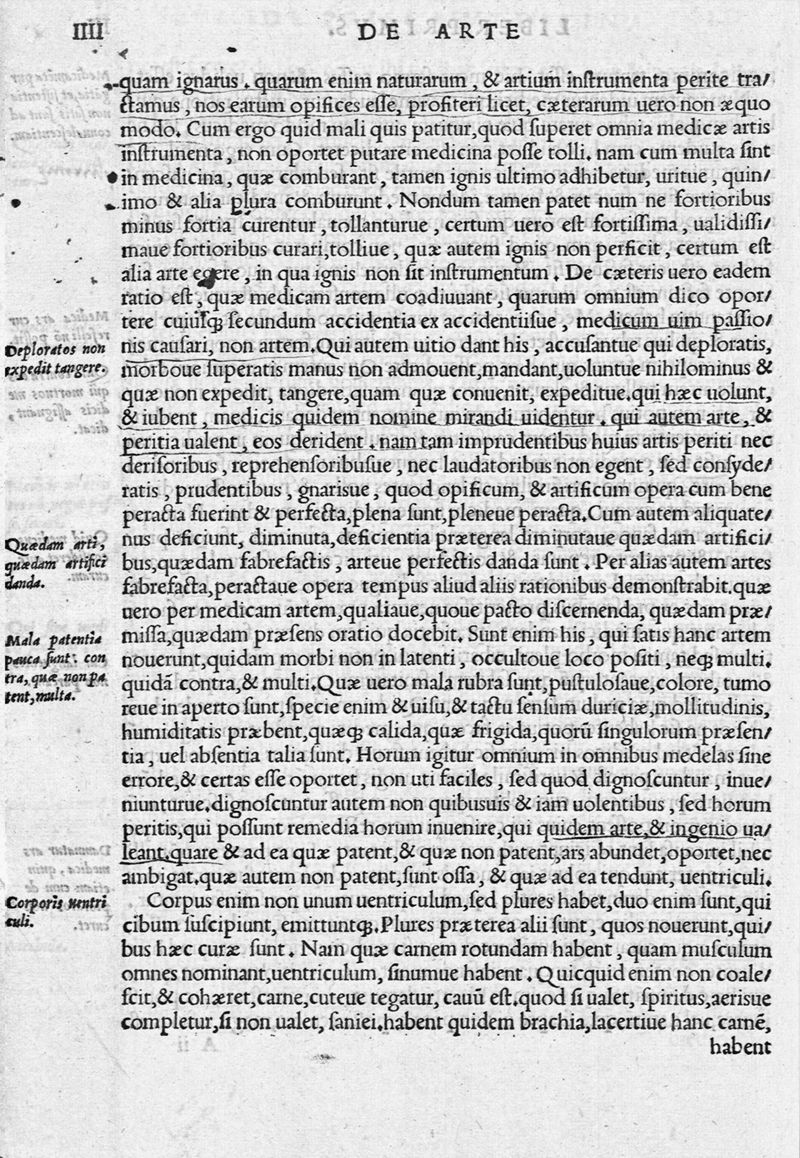 IIII DE ARTE
quam ignarus . quarum enim naturarum , & artium inſtrumenta perite tra/
ctamus , nos earum opifices eſſe, profiteri licet, cæterarum uero non æquo
modo. Cum ergo quid mali quis patitur,quod ſuperet omnia medicæ artis
inſtrumenta , non oportet putare medicina poſſe tolli. nam cum multa ſint
in medicina, quæ comburant, tamen ignis ultimo adhibetur, uritue , quin/
imo & alia plura comburunt . Nondum tamen patet num ne fortioribus
minus fortia curentur , tollanturue , certum uero eſt fortiſſima , ualidiſſi/
maue fortioribus curari,tolliue , quæ autem ignis non perficit , certum eſt
alia arte egere , in qua ignis non ſit inſtrumentum . De cæteris uero eadem
ratio eſt , quæ medicam artem coadiuuant , quarum omnium dico opor/
tere cuiuſqȝ ſecundum accidentia ex accidentiiſue , medicum uim paſſio/
nis cauſari, non artem.Qui autem uitio dant his , accuſantue qui deploratis,
Deploratos non
expedit tangere.
morboue ſuperatis manus non admouent,mandant,uoluntue nihilominus &
quæ non expedit, tangere,quam quæ conuenit, expeditue.qui hæc uolunt,
& iubent , medicis quidem nomine mirandi uidentur . qui autem arte, &
peritia ualent , eos derident . nam tam imprudentibus huius artis periti nec
deriſoribus , reprehenſoribuſue , nec laudatoribus non egent , ſed conſyde/
ratis , prudentibus , gnarisue , quod opificum, & artificum opera cum bene
peracta fuerint & perfecta,plena ſunt,pleneue peracta.Cum autem aliquate/
nus deficiunt, diminuta,deficientia præterea diminutaue quædam artifici/
Quædam arti,
quædam artifici
danda.
bus,quædam fabrefactis , arteue perfectis danda ſunt . Per alias autem artes
fabrefacta,peractaue opera tempus aliud aliis rationibus demonſtrabit.quæ
uero per medicam artem,qualiaue,quoue pacto diſcernenda, quædam præ/
miſſa,quædam præſens oratio docebit. Sunt enim his , qui ſatis hanc artem
Mala patentia
pauca ſunt. con
tra, quæ non pa
tent,multa.
nouerunt,quidam morbi non in latenti , occultoue loco poſiti , neqȝ multi.
quidã contra,& multi.Quæ uero mala rubra ſunt,puſtuloſaue,colore, tumo
reue in aperto ſunt,ſpecie enim & uiſu,& tactu ſenſum duriciæ,mollitudinis,
humiditatis præbent,quæqȝ calida,quæ frigida,quorũ ſingulorum præſen/
tia , uel abſentia talia ſunt. Horum igitur omnium in omnibus medelas ſine
errore,& certas eſſe oportet , non uti faciles , ſed quod dignoſcuntur , inue/
niunturue.dignoſcuntur autem non quibusuis & iam uolentibus , ſed horum
peritis,qui poſſunt remedia horum inuenire,qui quidem arte,& ingenio ua/
leant.quare & ad ea quæ patent,& quæ non patent,ars abundet,oportet,nec
ambigat.quæ autem non patent,ſunt oſſa , & quæ ad ea tendunt, uentriculi.
Corporis uentri
culi.
Corpus enim non unum uentriculum,ſed plures habet,duo enim ſunt,qui
cibum ſuſcipiunt, emittuntqȝ.Plures præterea alii ſunt , quos nouerunt,qui/
bus hæc curæ ſunt . Nam quæ carnem rotundam habent , quam muſculum
omnes nominant,uentriculum, ſinumue habent . Quicquid enim non coale/
ſcit,& cohæret,carne,cuteue tegatur, cauũ eſt.quod ſi ualet, ſpiritus,aerisue
completur,ſi non ualet, ſaniei.habent quidem brachia,lacertiue hanc carnẽ,
habent